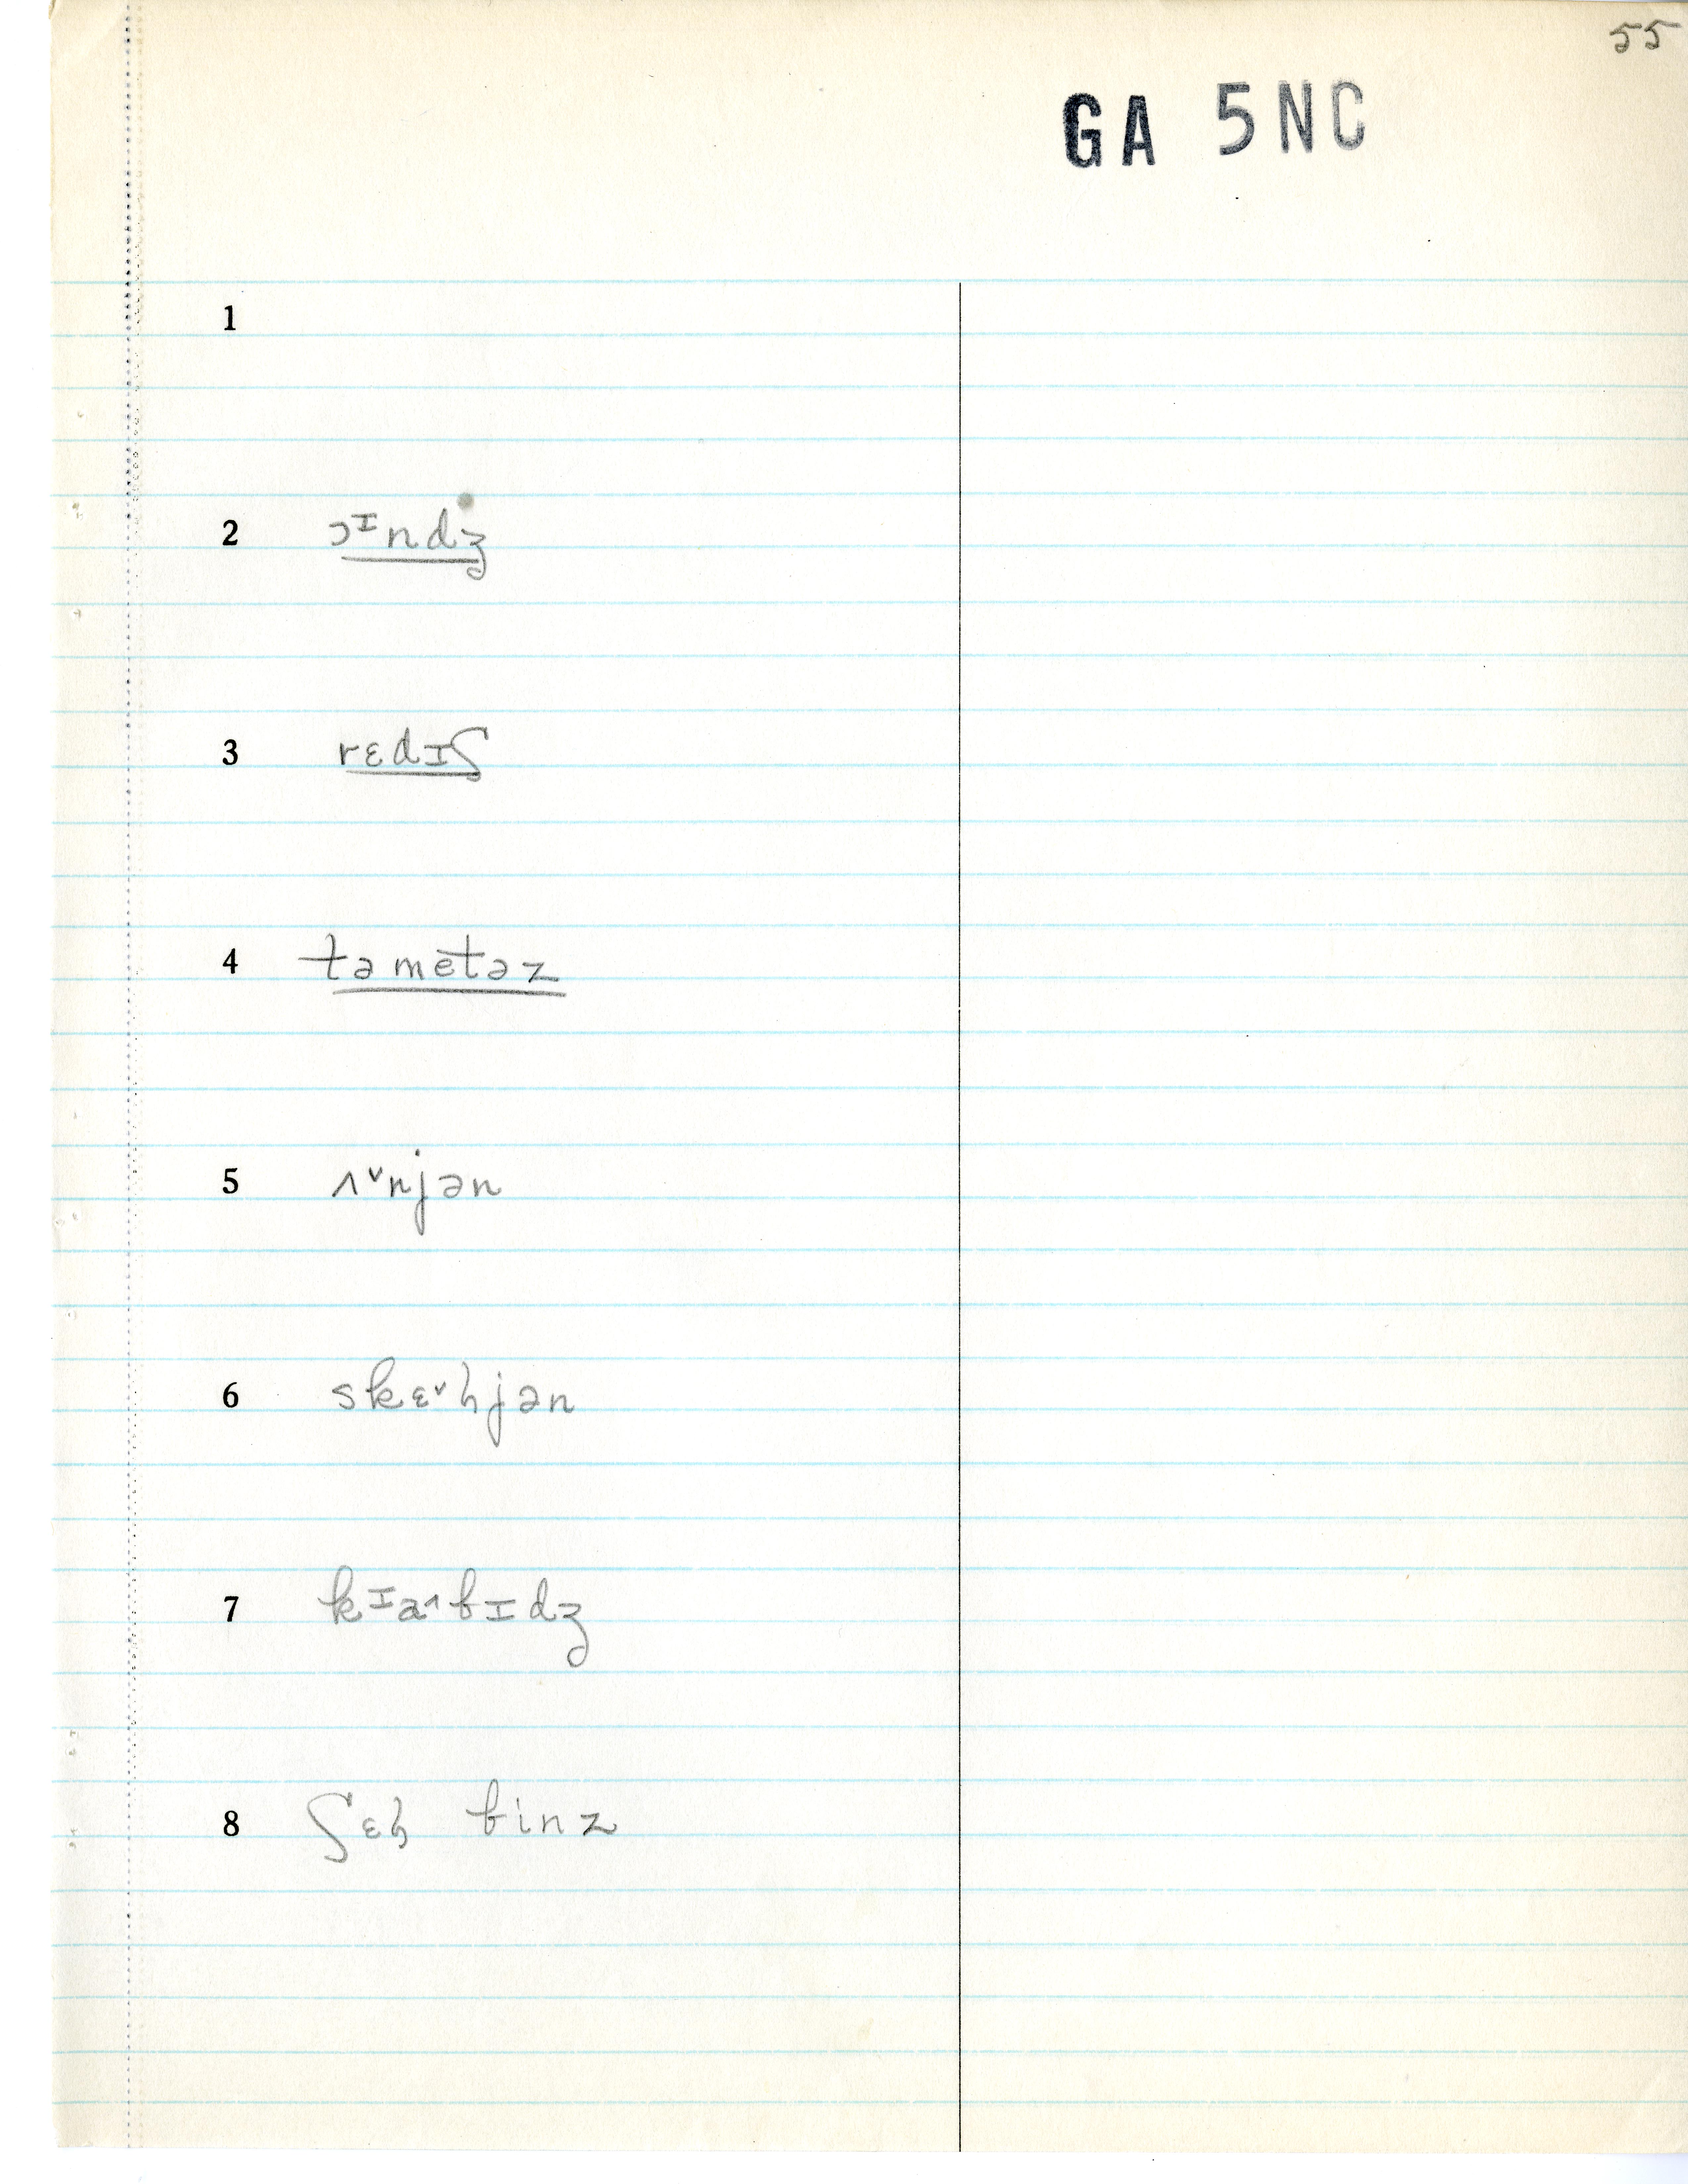 55
GA 5NC
1
2 ɔᶦndʒ
3 rɛdɪʃ
4 təmetəz
5 ʌ˅njən
6 skɛ˅ɦjən
7 kᶦa˄bɪdʒ
8 ʃɛɦ binz